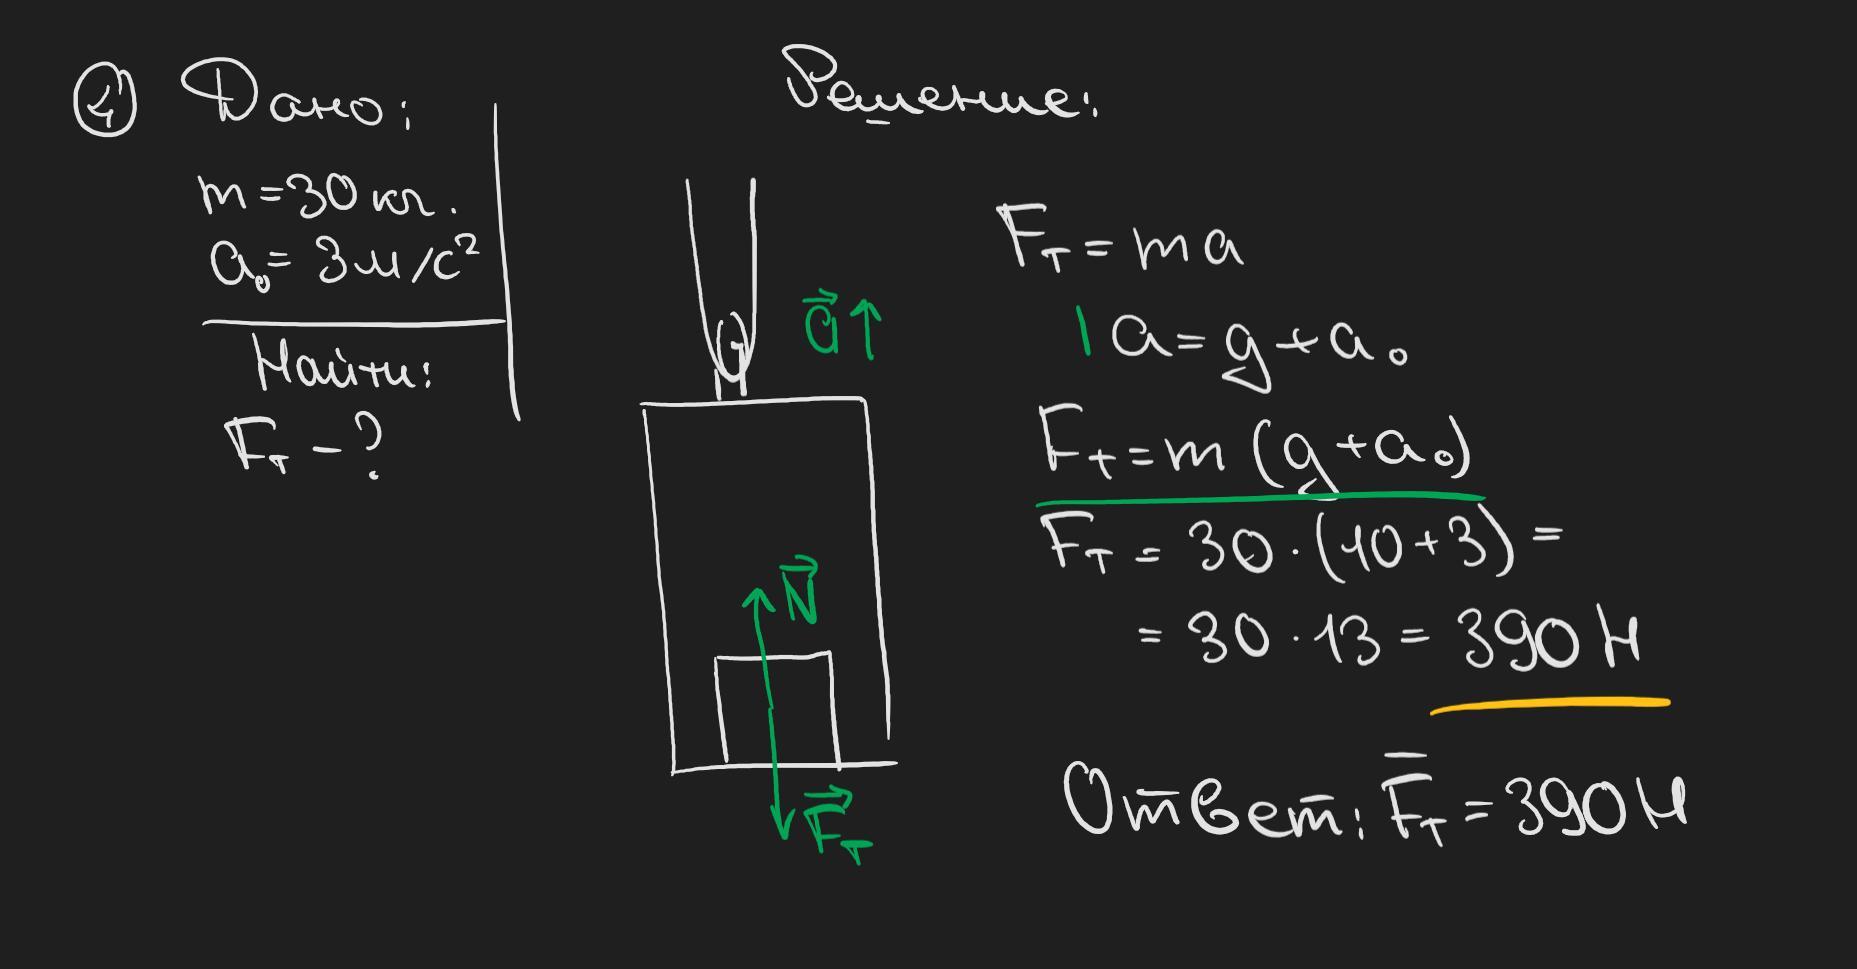 1 Дано:
m = 30 кг.
a₀ = 3 м/с²
Найти:
Fт - ?
Решение:
a⃗ ↑
N⃗
F⃗т
Fт = ma
| a = g + a₀
Fт = m (g + a₀)
Fт = 30 · (10 + 3) =
= 30 · 13 = 390 Н
Ответ: Fт = 390 Н